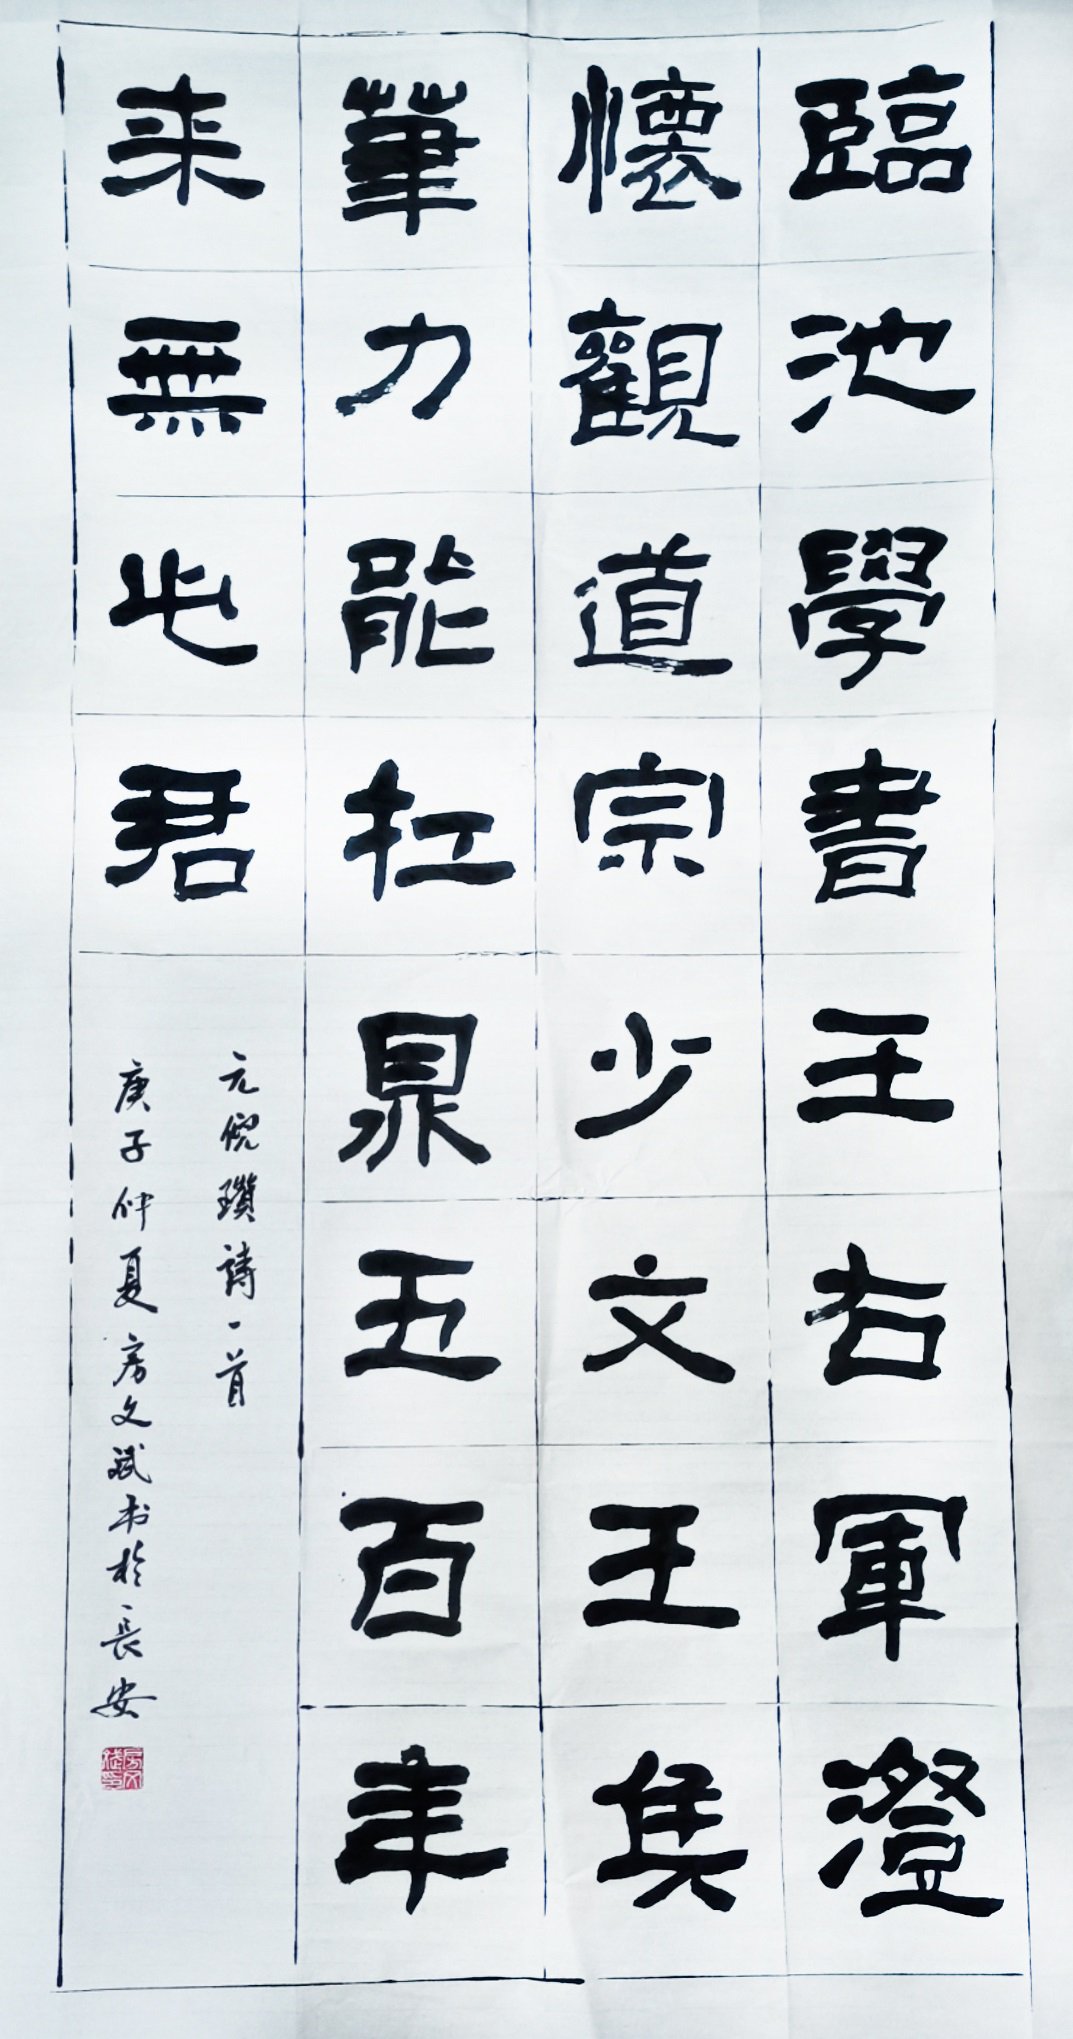 臨池學書王右軍澄
懷觀道宗少文王侯
筆力能扛鼎五百年
来無此君
元倪瓚詩一首
庚子仲夏房文斌书於長安